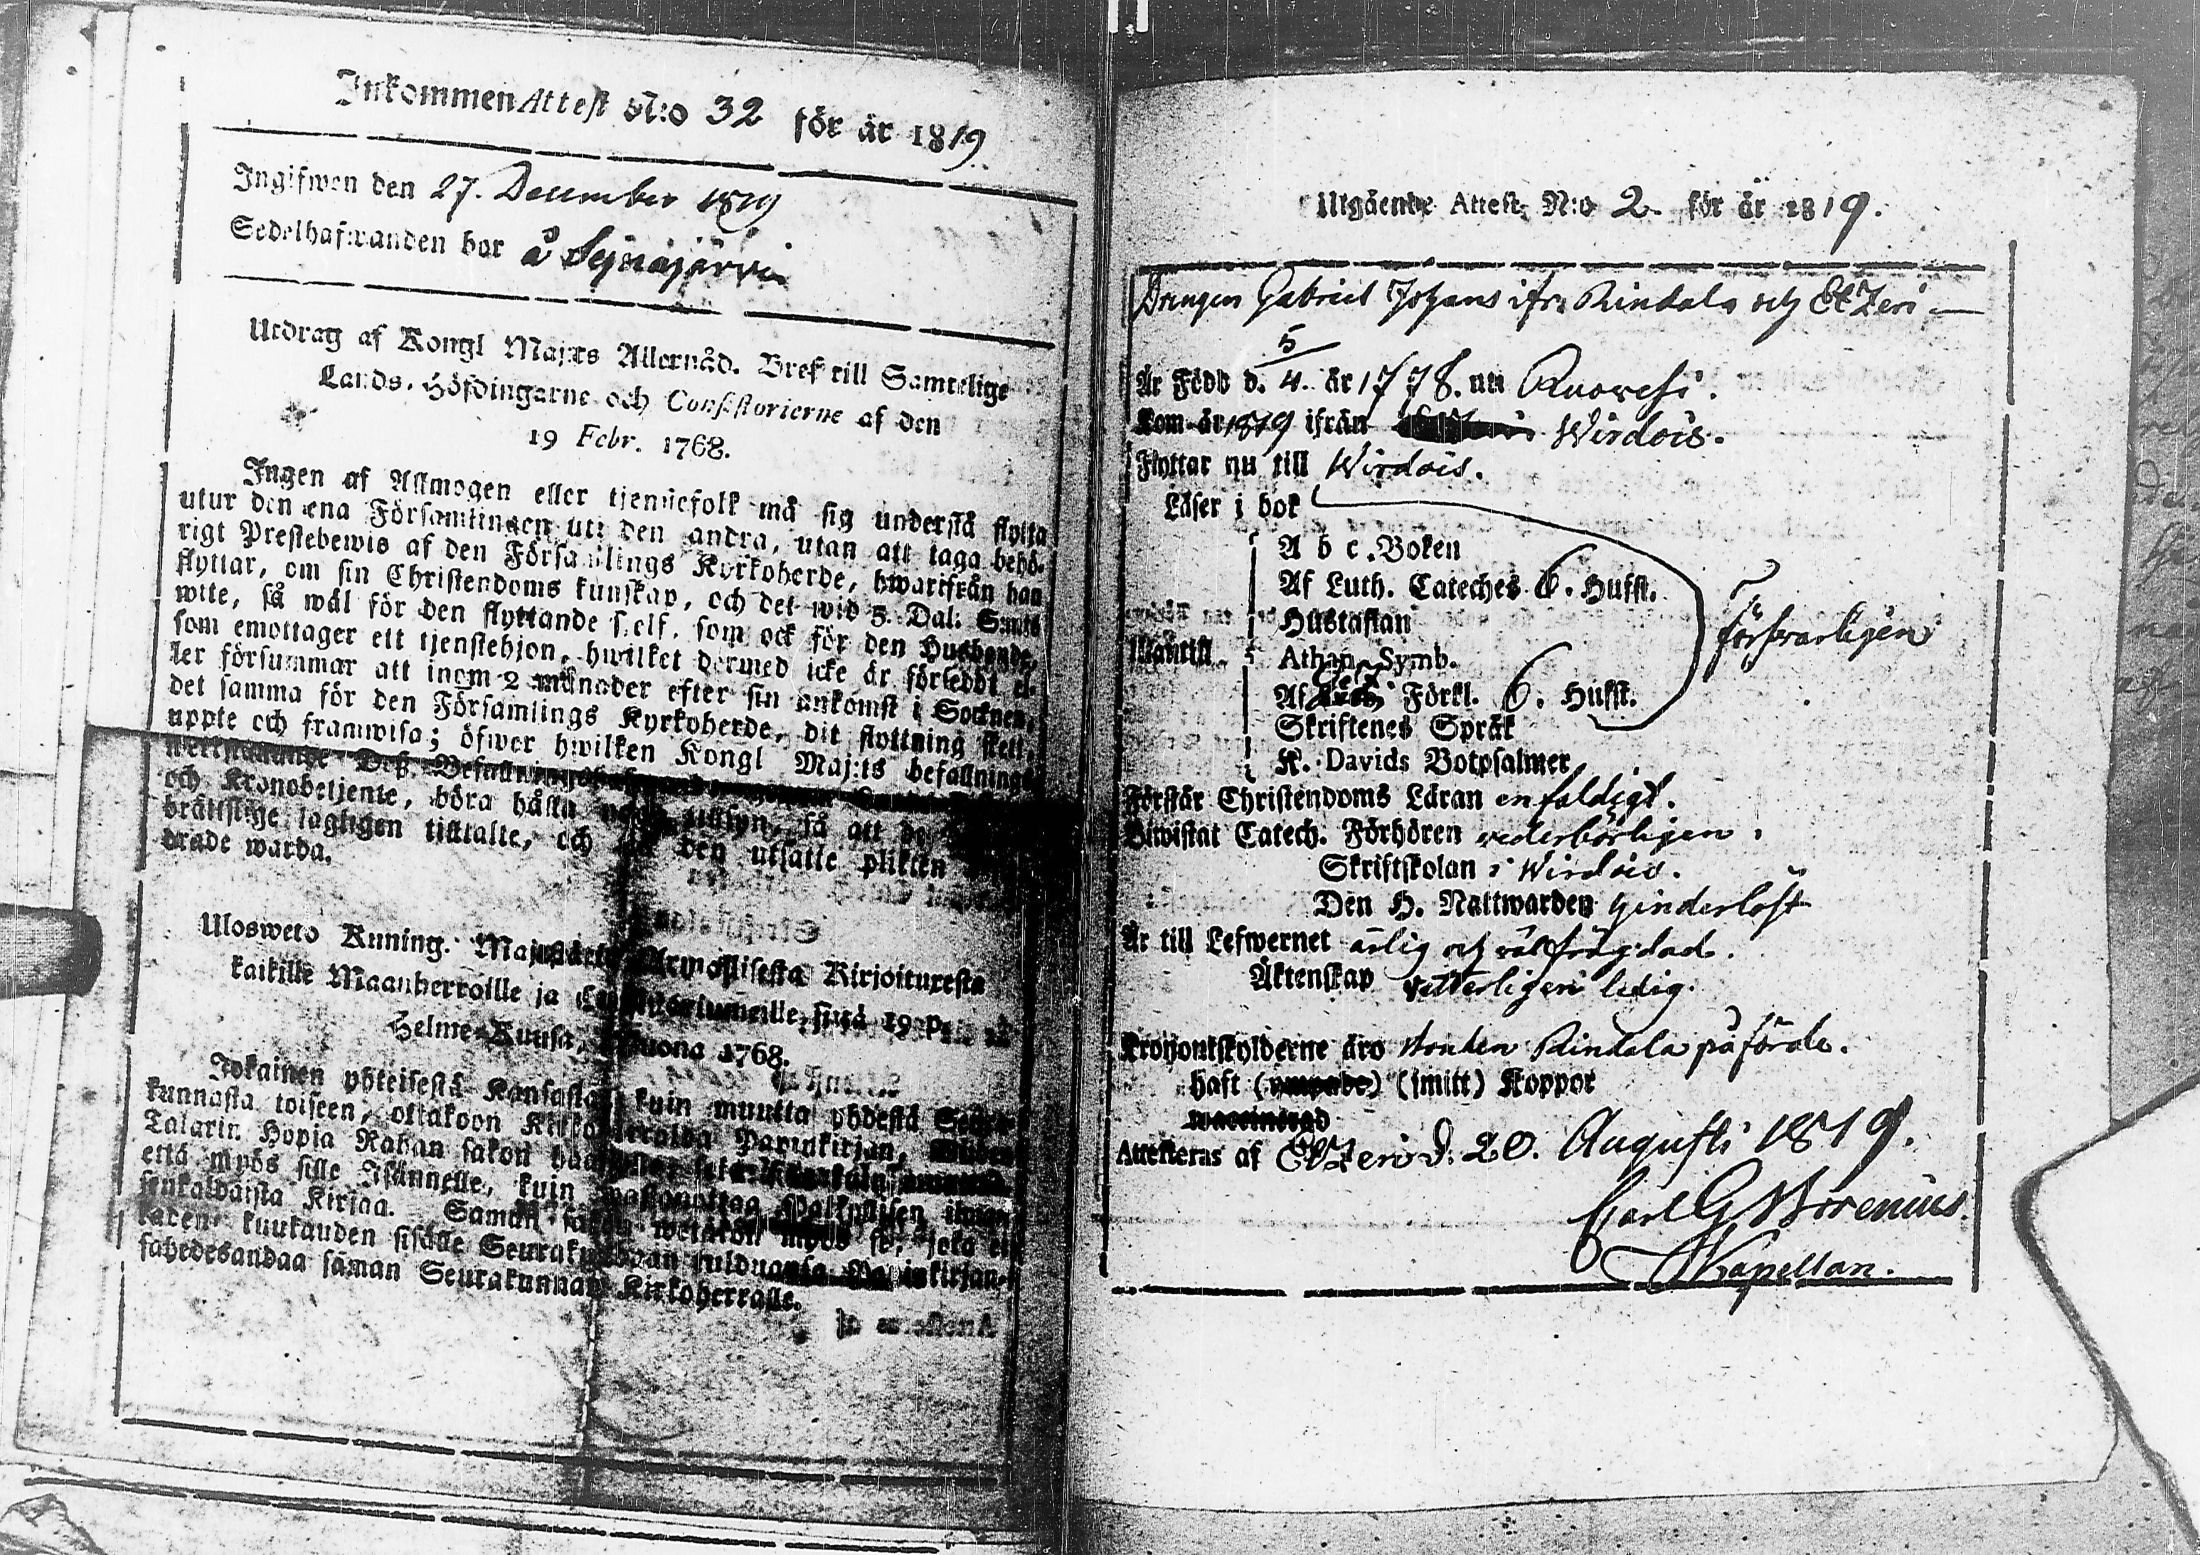 Inkommen Attest N:o 32 för år 1819
Ingifwen den 27. December 1819
Sedelhafwanden bor å Sejnäjärvi
Utdrag af Kongl Maj:ts Allernåd. Bref till Samtelige
Lands-Höfdingarne och Consistorierne af den
19 Febr. 1768.
Ingen af Allmogen eller tjennefolk må sig understå flytta
utur den ena Församlingen uti den andra, utan att taga behö-
rigt Prestebewis af den Församlings Kyrkoherde, hwarifrån han
flyttar, om sin Christendoms kunskap, och det wid 5 Dal: S:mts
wite, så wäl för den flyttande sjelf, som ock för den Husbonde,
som emottager ett tjenstehjon, hwilket dermed icke är försedt el-
ler försummar att inom 2 månader efter sin ankomst i Socknen,
det samma för den Församlings Kyrkoherde, dit flyttning skett,
uppte och framwisa; öfwer hwilken Kongl Maj:ts befallnings
werkställande Dess Befallningshafwande
och Kronobetjente, böra hålla noga tillsyn, så att de
brättslige lagligen tilltalte, och den utsatte plikten
drade warda.
Ulosweto Kuning. Majestätin Armollisesta Kirjoituxesta
kaikille Maanherroille ja Consistoriumeille, siitä 19 p:nä
Helme-Kuusa, Wuona 1768.
Jokainen yhteisestä Kansasta, kuin muutta yhdestä Seura-
kunnasta toiseen, ottakoon Kirkkoherralda Papinkirjan,
Talarin Hopia Rahan sakon
että myös sille Isännelle, kuin wastanottaa Palkpiian ilman
senkaldaista Kirjaa. Saman sakon wetäköön myös se, joka ei
kahden kuukauden sisälle Seurakundaan tulduansa Papinkirjan-
sahedesandaa saman Seurakunnan Kirkoherralle.
Utgående Attest N:o 2. för år 1819.
Drengen Gabriel Johans ifr. Rindala och Etzeri
Är Född d. 5/4. år 1778. nu Ruovesi.
Kom år 1819 ifrån Wirdois.
Flyttar nu till Wirdois.
Läser i bok
A b c. Boken
Af Luth. Cateches 6. Hufst.
Hustaflan
försvarligen
Mantill
Athan. Symb.
Af Förkl. 6. Hufst.
Skriftenes Språk
K. Davids Botpsalmer
Förstår Christendoms Läran enfaldigt.
Biwistat Catech. Förhören vederbörligen.
Skriftskolan i Wirdois.
Den H. Nattwarden hinderlöst
Är till Lefwernet ärlig och välfrägdad.
Äktenskap vetterligen ledig.
Kronoutskylderne äro Bonden Rindala påförde.
haft (smitt) Koppor
waccinerad
Attesteras af Etzeri d. 20. Augusti 1819.
Carl GBorenius
Kapellan.